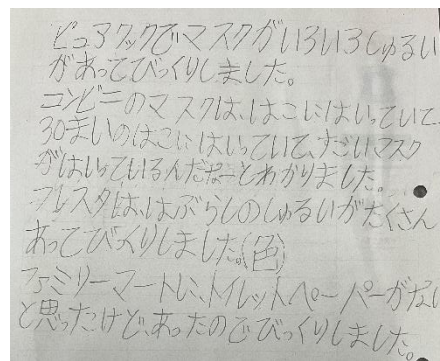 ピュアクックでマスクがいろいろしゅるい
があってびっくりしました。
コンビニのマスクは、はこにはいっていて、
30まいのはこにはいっていて、すごいマスク
がはいっているんだなーとわかりました。
フレスタは、はぶらしのしゅるいがたくさん
あってびっくりしました。(色)
ファミリーマートに、トイレットペーパーがない
と思ったけど、あったのでびっくりしました。